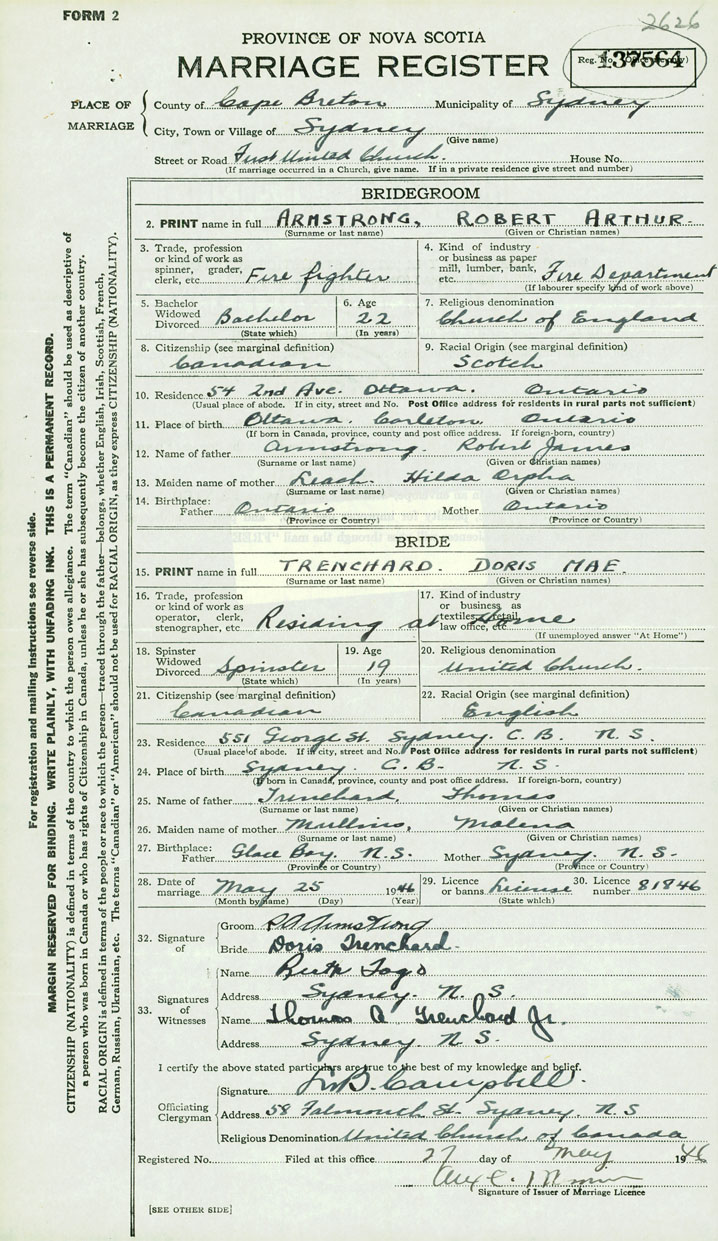 FORM 2
2626
PROVINCE OF NOVA SCOTIA
MARRIAGE REGISTER
Reg. No. 137564
PLACE OF MARRIAGE
County of Cape Breton Municipality of Sydney
City, Town or Village of Sydney
(Give name)
Street or Road First United Church. House No.
(If marriage occurred in a Church, give name. If in a private residence give street and number)
BRIDEGROOM
2. PRINT name in full ARMSTRONG, ROBERT ARTHUR.
(Surname or last name) (Given or Christian names)
3. Trade, profession or kind of work as spinner, grader, clerk, etc. Fire fighter
4. Kind of industry or business as paper mill, lumber, bank, etc. Fire Department
(If labourer specify kind of work above)
5. Bachelor Widowed Divorced Bachelor
(State which)
6. Age 22
(In years)
7. Religious denomination
Church of England
8. Citizenship (see marginal definition)
Canadian
9. Racial Origin (see marginal definition)
Scotch
10. Residence 54 2nd Ave. Ottawa. Ontario
(Usual place of abode. If in city, street and No. Post Office address for residents in rural parts not sufficient)
11. Place of birth Ottawa. Carleton Ontario
(If born in Canada, province, county and post office address. If foreign-born, country)
12. Name of father Armstrong. Robert James
(Surname or last name) (Given or Christian names)
13. Maiden name of mother Leach. Hilda Orpha
(Surname or last name) (Given or Christian names)
14. Birthplace: Father Ontario Mother Ontario
(Province or Country) (Province or Country)
BRIDE
15. PRINT name in full TRENCHARD. DORIS MAE.
(Surname or last name) (Given or Christian names)
16. Trade, profession or kind of work as operator, clerk, stenographer, etc Residing at Home
17. Kind of industry or business as textiles, retail, law office, etc
(If unemployed answer "At Home")
18. Spinster Widowed Divorced Spinster
(State which)
19. Age 19
(In years)
20. Religious denomination
United Church.
21. Citizenship (see marginal definition)
Canadian
22. Racial Origin (see marginal definition)
English
23. Residence 551 George St. Sydney. C. B. N. S.
(Usual place of abode. If in city, street and No. Post Office address for residents in rural parts not sufficient)
24. Place of birth Sydney. C. B. N. S.
(If born in Canada, province, county and post office address. If foreign-born, country)
25. Name of father Trenchard, Thomas
(Surname or last name) (Given or Christian names)
26. Maiden name of mother Mullins, Malena
(Surname or last name) (Given or Christian names)
27. Birthplace: Father Glace Bay. N.S. Mother Sydney. N. S.
(Province or Country) (Province or Country)
28. Date of marriage May 25 1946
(Month by name) (Day) (Year)
29. Licence or banns License
(State which)
30. Licence number 81846
32. Signature of
Groom R A Armstrong
Bride Doris Trenchard.
33. Signatures of Witnesses
Name Ruth
Address Sydney. N. S.
Name Thomas A Trenchard Jr.
Address Sydney. N. S.
I certify the above stated particulars are true to the best of my knowledge and belief.
Officiating Clergyman
Signature Campbell.
Address 58 Falmouth St. Sydney. N. S
Religious Denomination United Church of Canada
Registered No. Filed at this office 27 day of May 1946
Signature of Issuer of Marriage Licence
[SEE OTHER SIDE]
For registration and mailing instructions see reverse side.
MARGIN RESERVED FOR BINDING. WRITE PLAINLY, WITH UNFADING INK. THIS IS A PERMANENT RECORD.
CITIZENSHIP (NATIONALITY) is defined in terms of the country to which the person owes allegiance. The term "Canadian" should be used as descriptive of
a person who was born in Canada or who has rights of Citizenship in Canada, unless he or she has subsequently become the citizen of another country.
RACIAL ORIGIN is defined in terms of the people or race to which the person—traced through the father—belongs, whether English, Irish, Scottish, French,
German, Russian, Ukrainian, etc. The terms "Canadian" or "American" should not be used for RACIAL ORIGIN, as they express CITIZENSHIP (NATIONALITY).